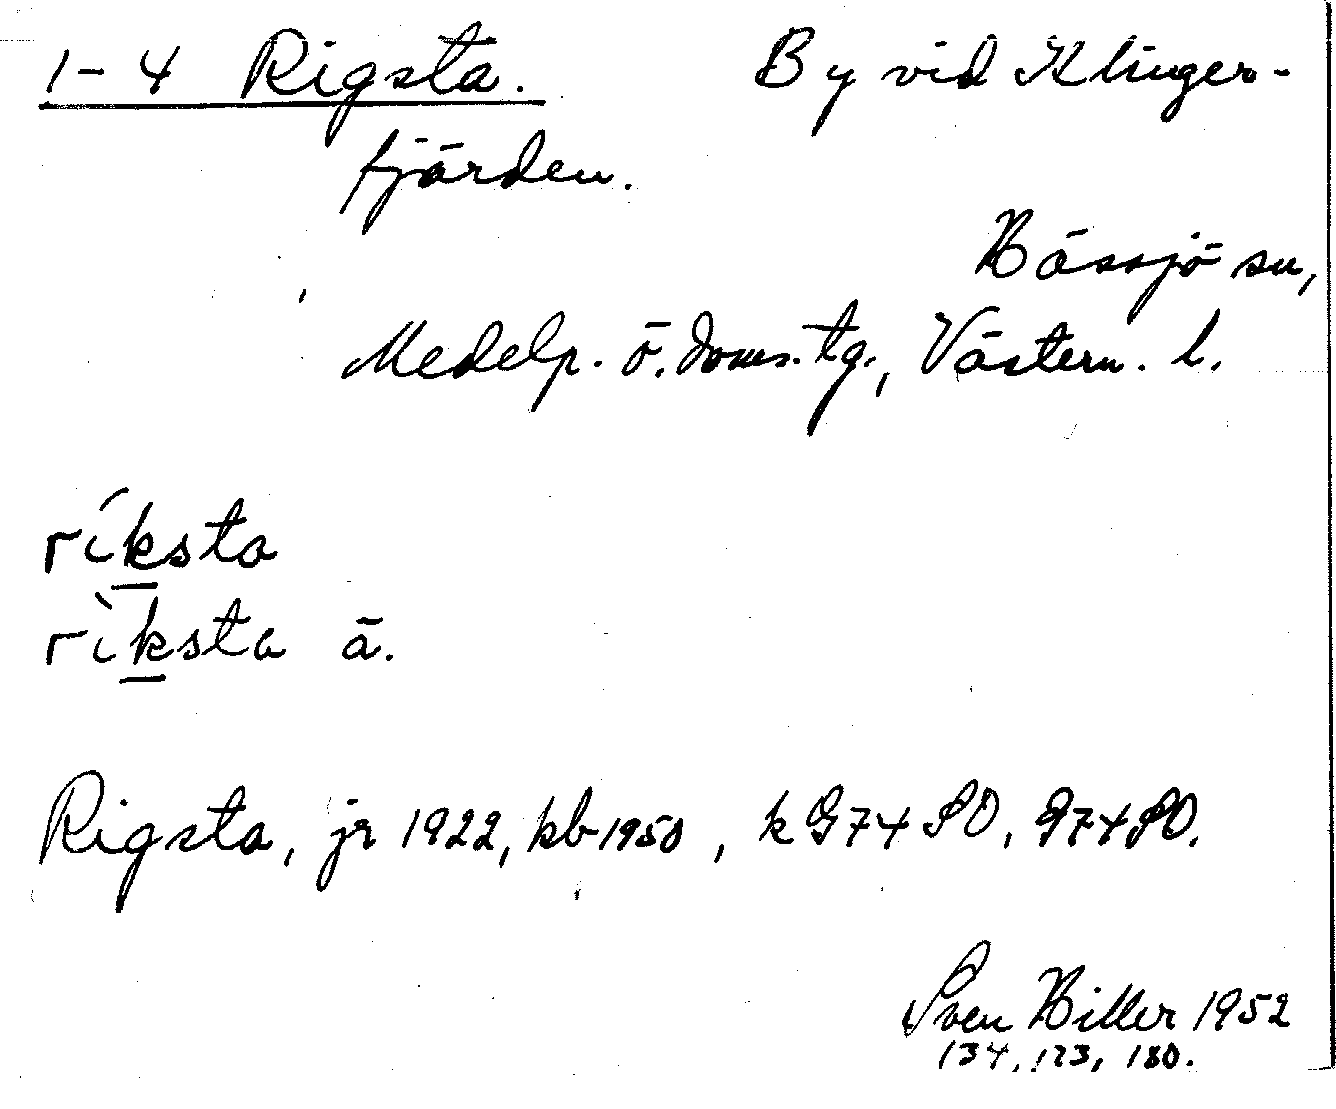 1-4 Rigsta. By vid Klinger-
fjärden.
Hässjö sn,
Medelp. ö. doms. tg., Västern. l.
ríksta
rìksta ä.
Rigsta, jr 1922, kb 1950, k G74 SO, G74 SO.
Sven Hiller 1952
134, 123, 180.